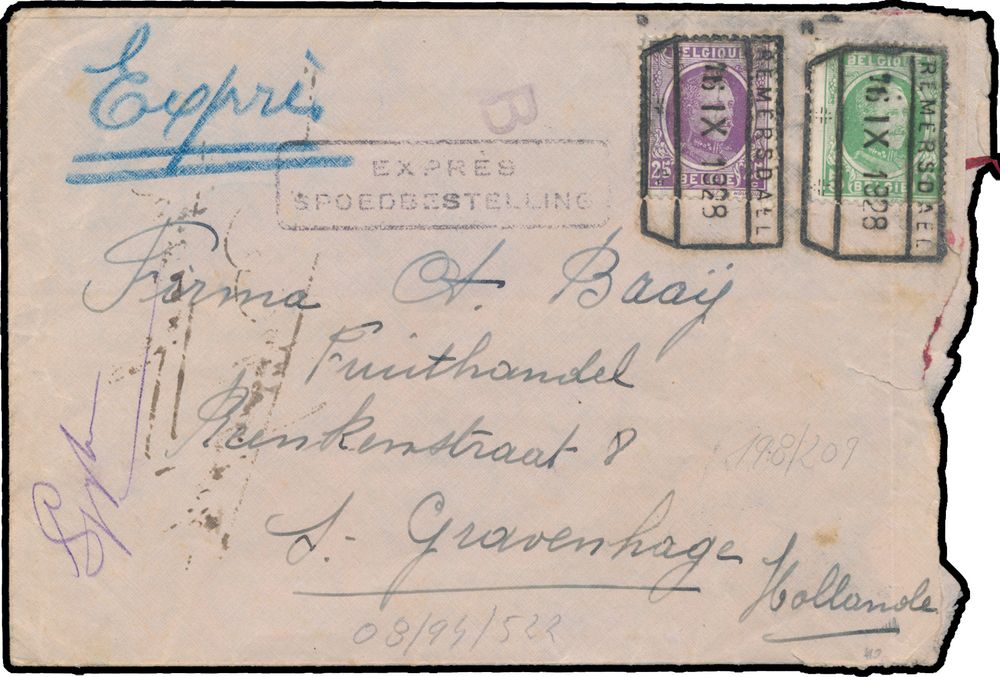 Exprès
B
EXPRÈS
SPOEDBESTELLING
BELGIQUE
BELGIË
REMERSDAEL
16 IX 1928
BELGIQUE
BELGIË
REMERSDAEL
16 IX 1928
Firma A. Baaij
Fruithandel
straat 8
S- Gravenhage
Hollande
198/209
08/94/522